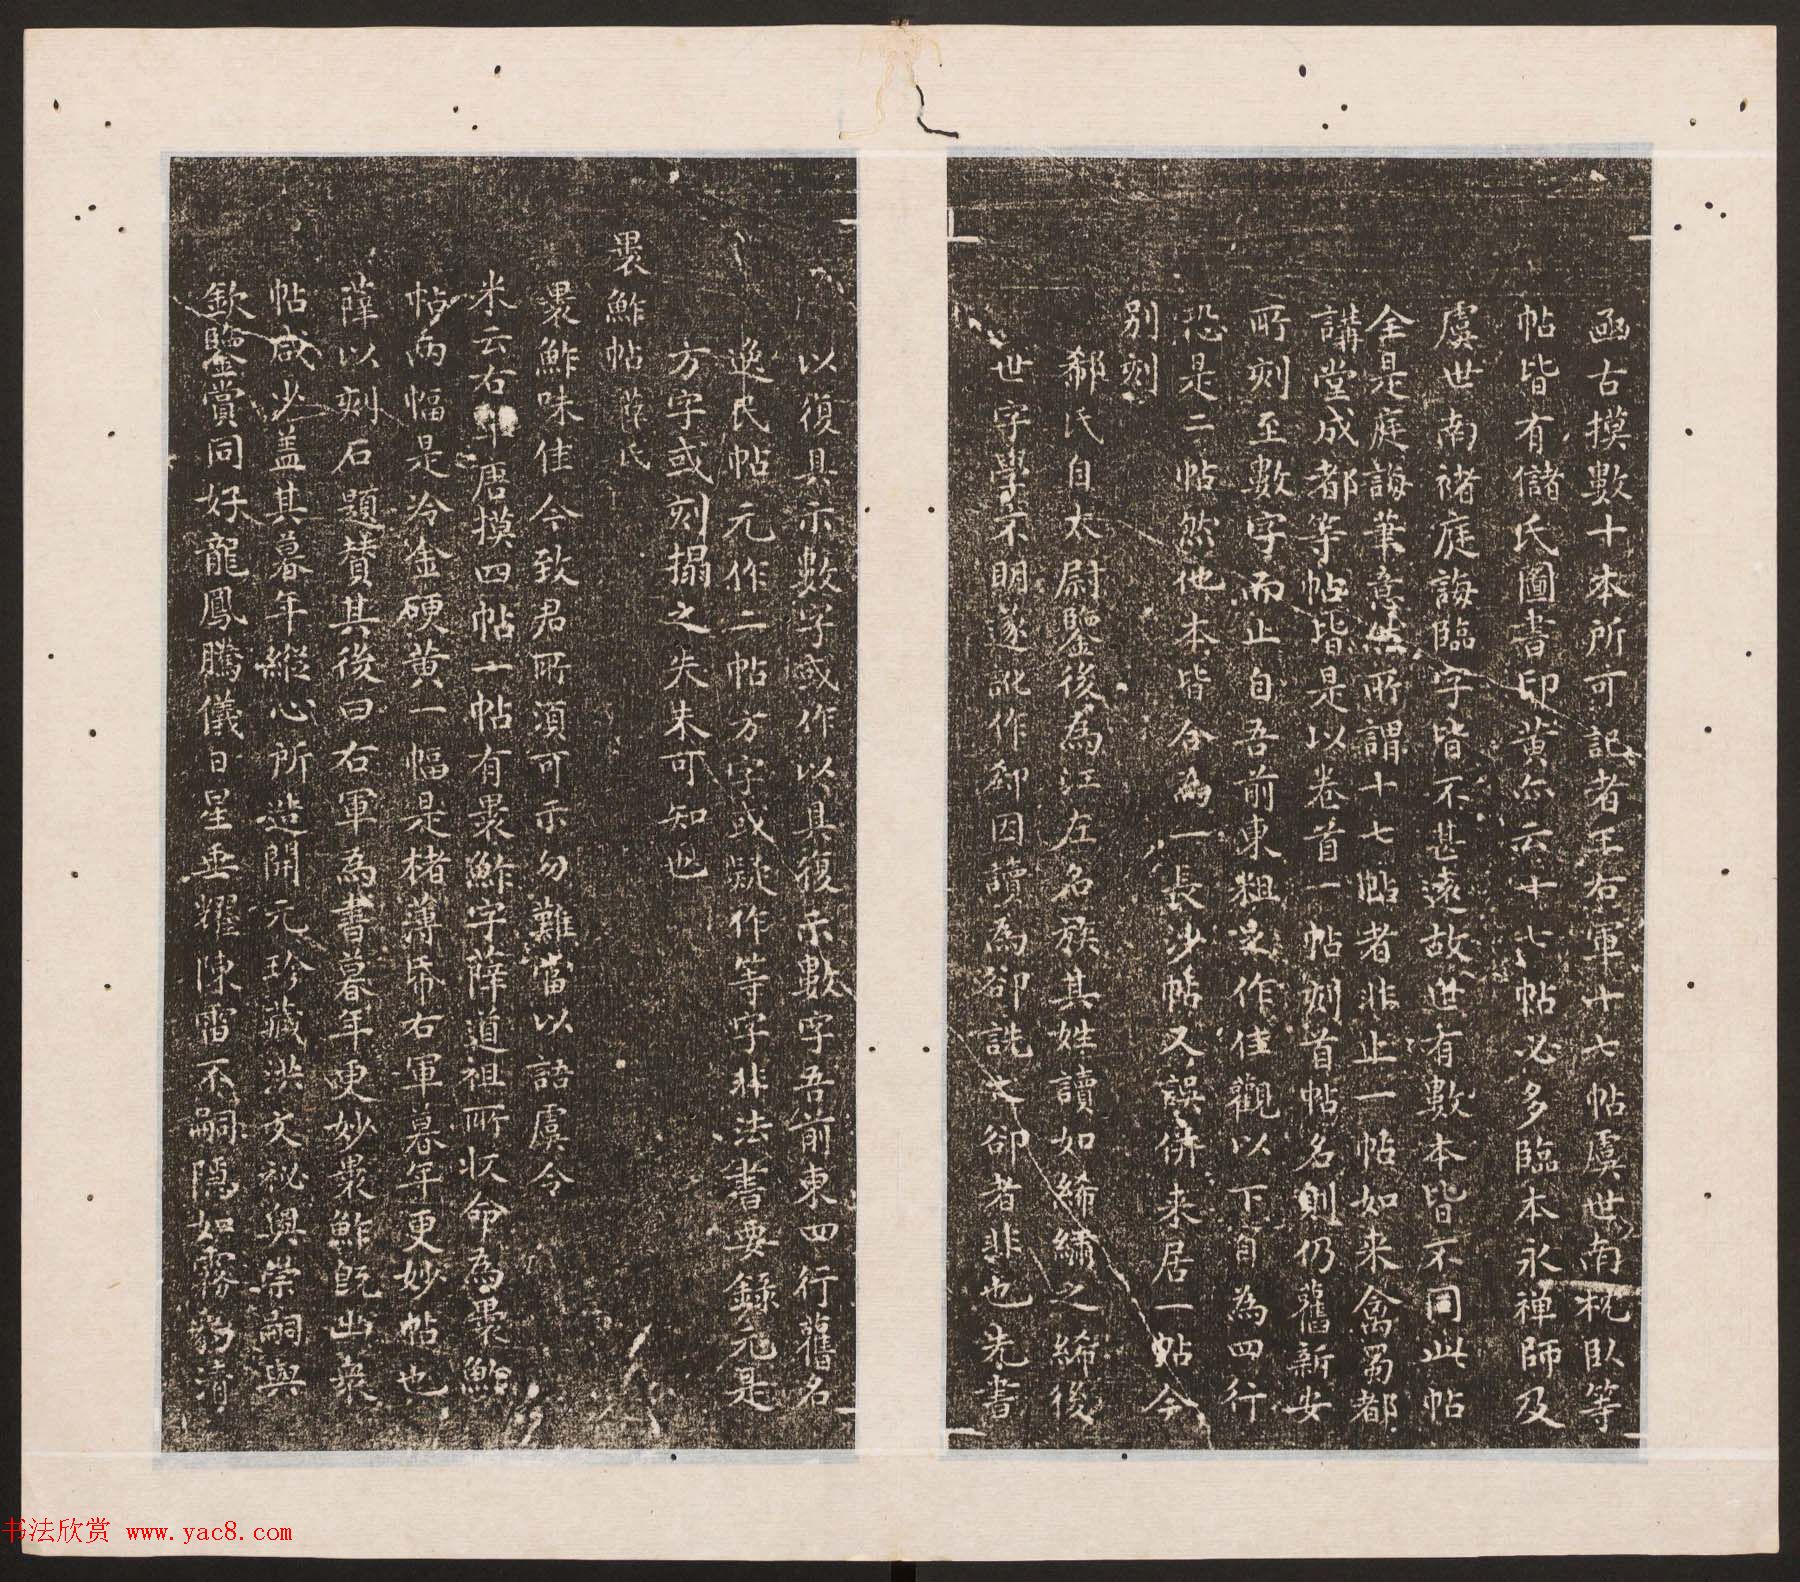 函古摸數十本所可記者王右軍十七帖虞世南枕臥等
帖皆有儲氏圖書印黃亦云十七帖必多臨本永禪師及
虞世南褚庭誨臨字皆不甚遠故世有數本皆不同此帖
全是庭誨筆意然所謂十七帖者非止一帖如来禽蜀都
講堂成都等帖皆是以卷首一帖刻首帖名則仍舊新安
所刻至數字而止自吾前東粗足作佳觀以下自為四行
恐是二帖然他本皆合為一長沙帖又誤併来居一帖今
別刻
郗氏自太尉鑒後為江左名族其姓讀如絺繡之絺後
世字學不明遂訛作郄因讀為郤詵之郤者非也先書
以復具示數字或作以具復示數字吾前東四行舊名
逸民帖元作二帖方字或疑作等字非法書要錄元是
方字或刻搨之失未可知也
裹鮓帖薛氏
裹鮓味佳今致君所須可示勿難當以語虞令
米云右軍唐摸四帖一帖有裹鮓字薛道祖所收命為裹鮓
帖兩幅是冷金硬黃一幅是楮薄帋右軍暮年更妙帖也
薛以刻石題贊其後曰右軍為書暮年更妙裹鮓既出衆
帖咸少盖其暮年縱心所造開元珍藏洪文祕奧崇嗣與
欽鑒賞同好龍鳳騰儀日星垂耀陳雷不嗣隱如霧豹清
书法欣赏 www.yac8.com